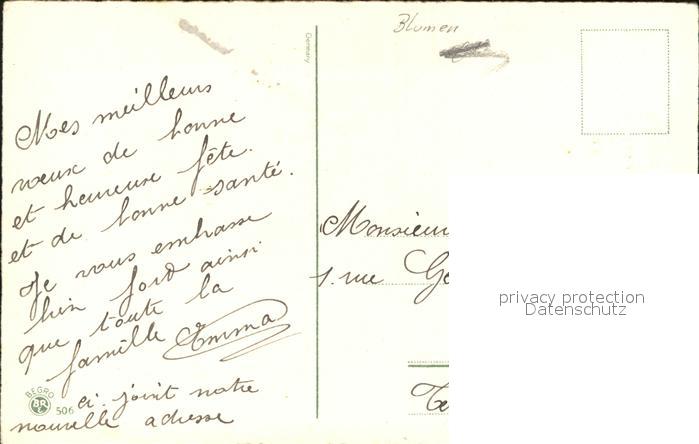 Mes meilleurs
vœux de bonne
et heureuse fête.
et de bonne santé.
Je vous embrasse
bien fort ainsi
que toute la
famille Emma
ci joint notre
nouvelle adresse
BEGRO
506
Germany
Blumen
Monsieur
1. rue Ge
Te
privacy protection
Datenschutz